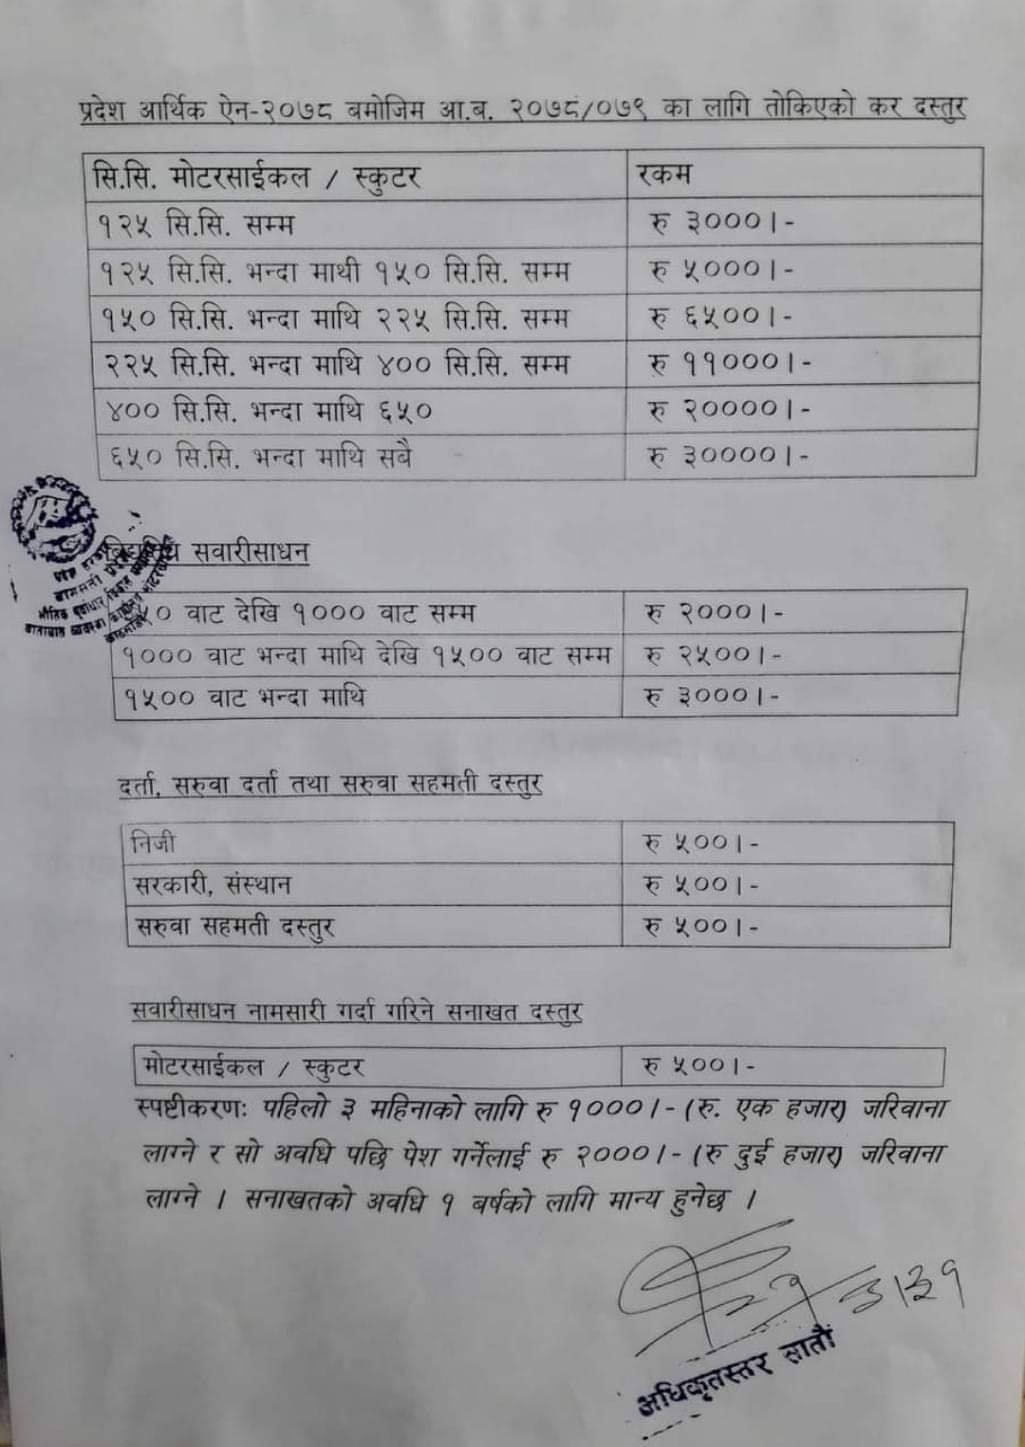 प्रदेश आर्थिक ऐन-२०७८ बमोजिम आ.ब. २०७८/०७९ का लागि तोकिएको कर दस्तुर
सि.सि. मोटरसाईकल / स्कुटर रकम
१२५ सि.सि. सम्म रु ३०००।-
१२५ सि.सि. भन्दा माथी १५० सि.सि. सम्म रु ५०००।-
१५० सि.सि. भन्दा माथि २२५ सि.सि. सम्म रु ६५००।-
२२५ सि.सि. भन्दा माथि ४०० सि.सि. सम्म रु ११०००।-
४०० सि.सि. भन्दा माथि ६५० रु २००००।-
६५० सि.सि. भन्दा माथि सबै रु ३००००।-
सवारीसाधन
वाट देखि १००० वाट सम्म रु २०००।-
१००० वाट भन्दा माथि देखि १५०० वाट सम्म रु २५००।-
१५०० वाट भन्दा माथि रु ३०००।-
दर्ता, सरुवा दर्ता तथा सरुवा सहमती दस्तुर
निजी रु ५००।-
सरकारी, संस्थान रु ५००।-
सरुवा सहमती दस्तुर रु ५००।-
सवारीसाधन नामसारी गर्दा गरिने सनाखत दस्तुर
मोटरसाईकल / स्कुटर रु ५००।-
स्पष्टीकरणः पहिलो ३ महिनाको लागि रु १०००।- (रु. एक हजार) जरिवाना
लाग्ने र सो अवधि पछि पेश गर्नेलाई रु २०००।- (रु दुई हजार) जरिवाना
लाग्ने । सनाखतको अवधि १ बर्षको लागि मान्य हुनेछ ।
अधिकृतस्तर सातौं